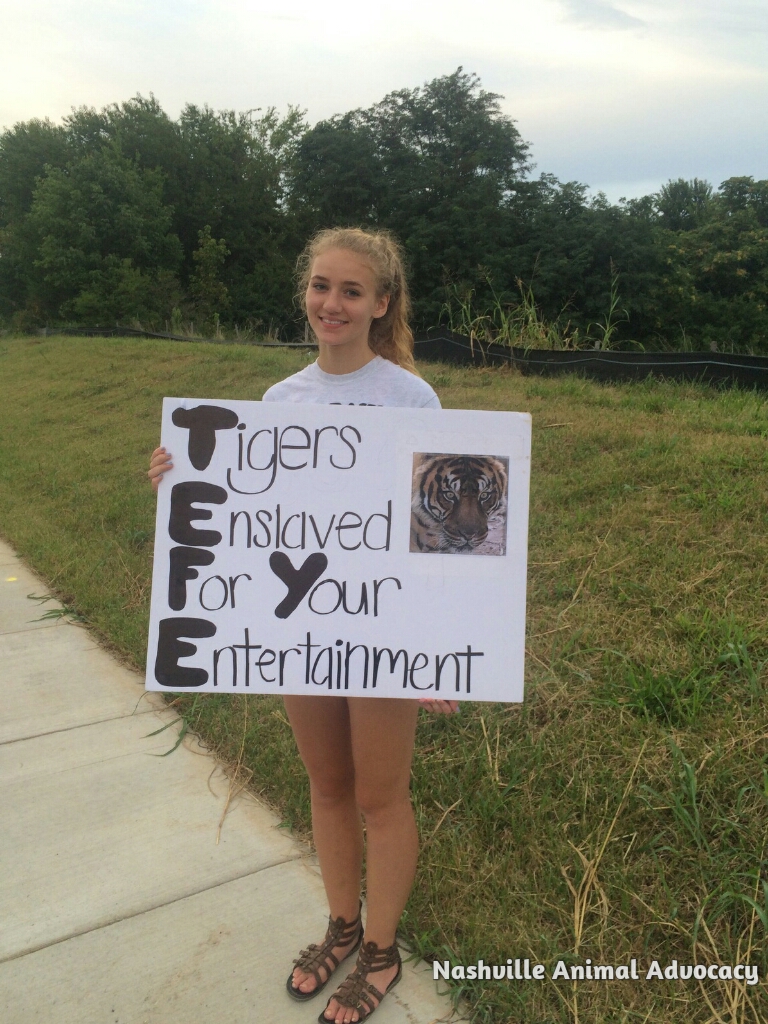 Tigers
Enslaved
For Your
Entertainment
Nashville Animal Advocacy